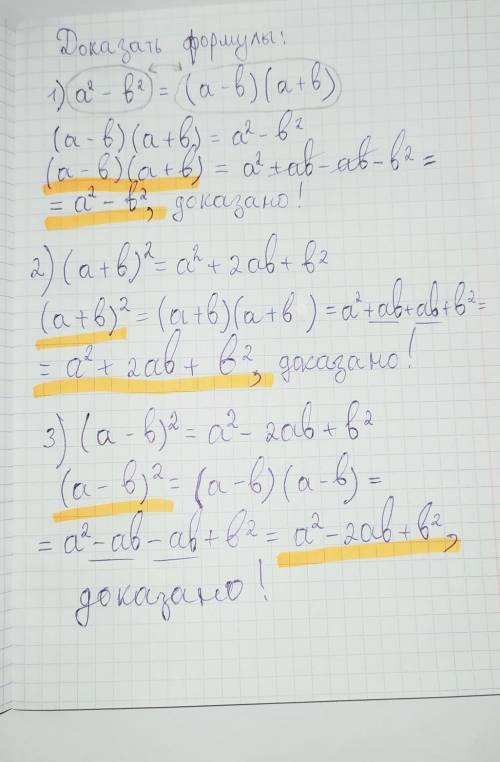 Доказать формулы:
1) a² - b² = (a - b)(a + b)
(a - b)(a + b) = a² - b²
(a - b)(a + b) = a² + ab - ab - b² =
= a² - b², доказано!
2) (a + b)² = a² + 2ab + b²
(a + b)² = (a + b)(a + b) = a² + ab + ab + b² =
= a² + 2ab + b², доказано!
3) (a - b)² = a² - 2ab + b²
(a - b)² = (a - b)(a - b) =
= a² - ab - ab + b² = a² - 2ab + b²,
доказано!